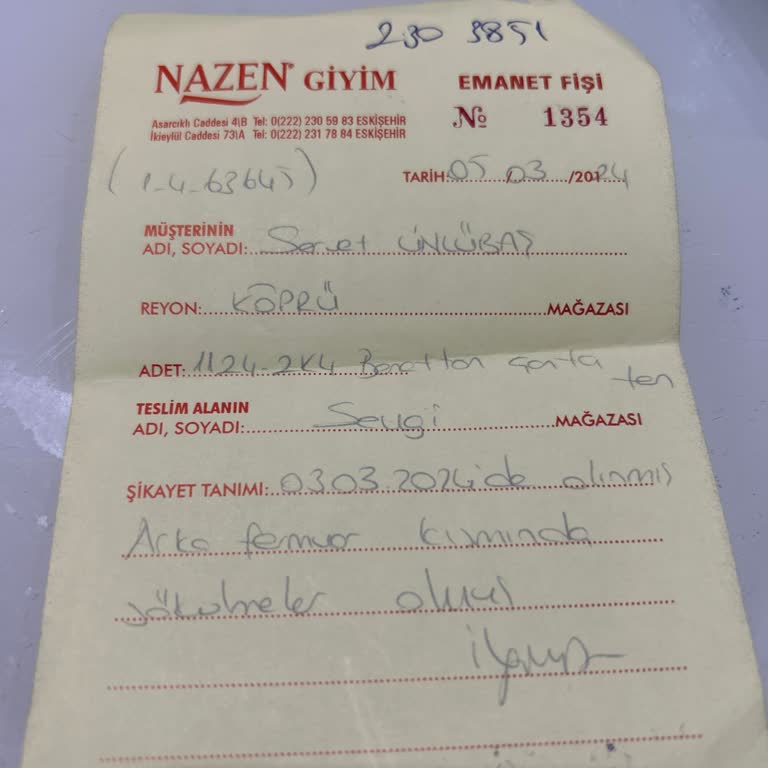 230 3851
NAZEN GİYİM
EMANET FİŞİ
Asarcıklı Caddesi 4\B Tel: 0(222) 230 59 83 ESKİŞEHİR
İkieylül Caddesi 73\A Tel: 0(222) 231 78 84 ESKİŞEHİR
№ 1354
(1-4-63645)
TARİH: 05/03/2024
MÜŞTERİNİN
ADI, SOYADI: Servet ÜNLÜBAŞ
REYON: KÖPRÜ MAĞAZASI
ADET: 1124-2K4 Benetton çanta
ten
TESLİM ALANIN
ADI, SOYADI: Sevgi MAĞAZASI
ŞİKAYET TANIMI: 03.03.2024'de alınmış
Arka fermuar kısmında
sökülmeler olmuş